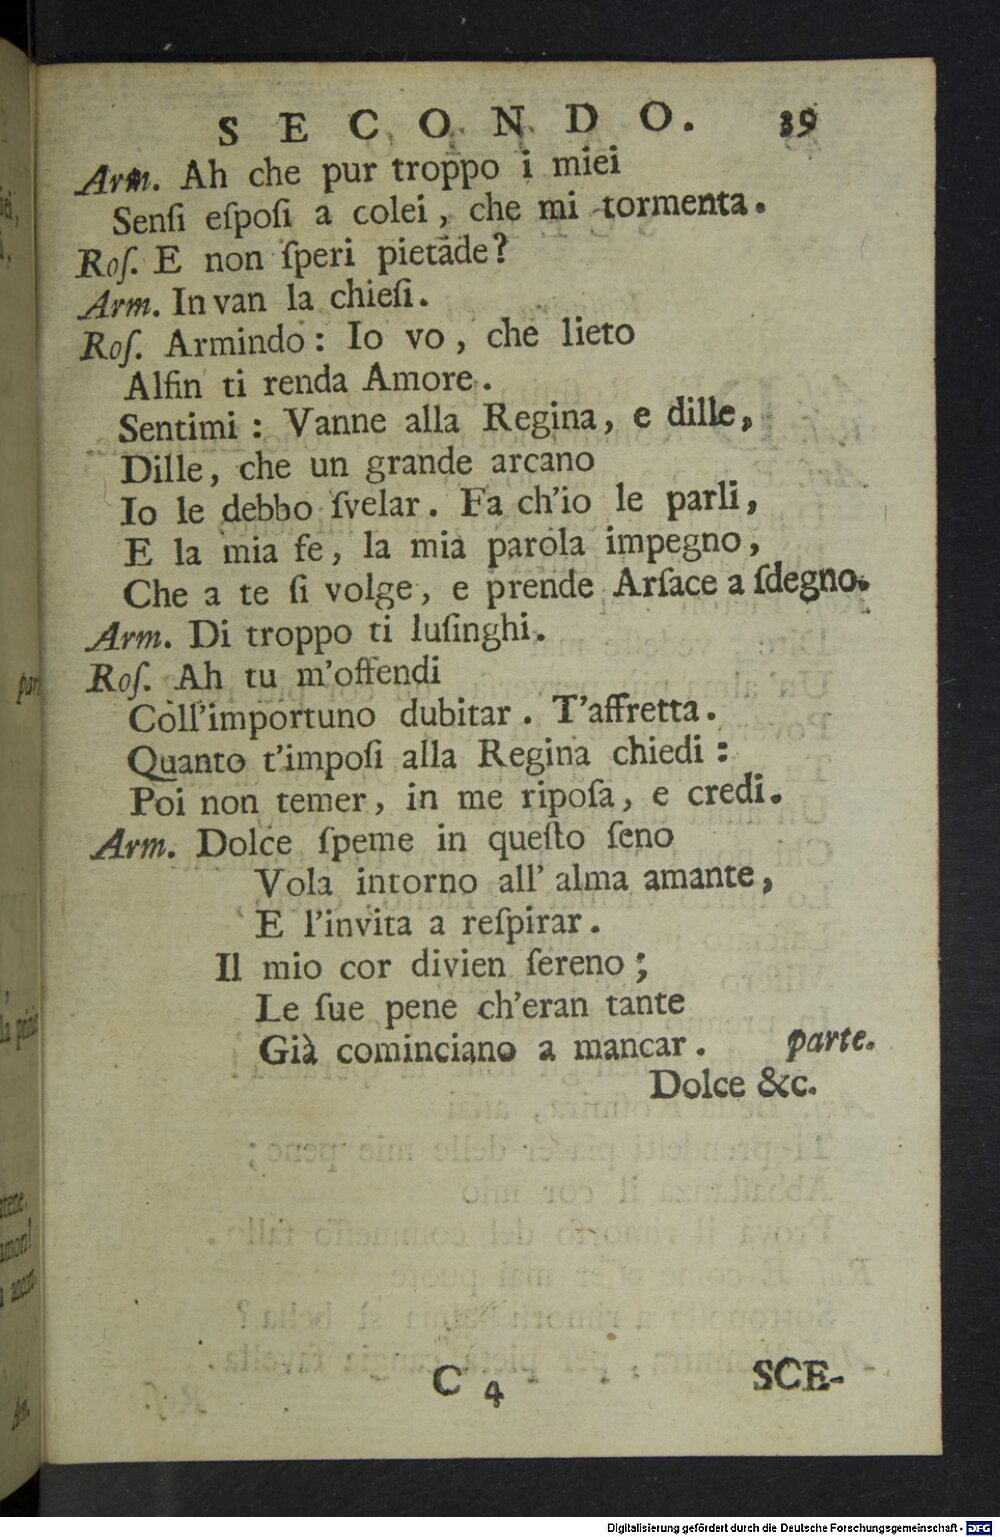 SECONDO. 39
Arm. Ah che pur troppo i miei
Senſi eſpoſi a colei, che mi tormenta.
Roſ. E non ſperi pietade?
Arm. In van la chieſi.
Roſ. Armindo: Io vo, che lieto
Alfin ti renda Amore.
Sentimi: Vanne alla Regina, e dille,
Dille, che un grande arcano
Io le debbo ſvelar. Fa ch'io le parli,
E la mia fe, la mia parola impegno,
Che a te ſi volge, e prende Arſace a ſdegno.
Arm. Di troppo ti luſinghi.
Roſ. Ah tu m'offendi
Coll'importuno dubitar. T'affretta.
Quanto t'impoſi alla Regina chiedi:
Poi non temer, in me ripoſa, e credi.
Arm. Dolce ſpeme in queſto ſeno
Vola intorno all' alma amante,
E l'invita a reſpirar.
Il mio cor divien ſereno;
Le ſue pene ch'eran tante
Già cominciano a mancar. parte.
Dolce &c.
C 4 SCE-
Digitalisierung gefördert durch die Deutsche Forschungsgemeinschaft - DFG